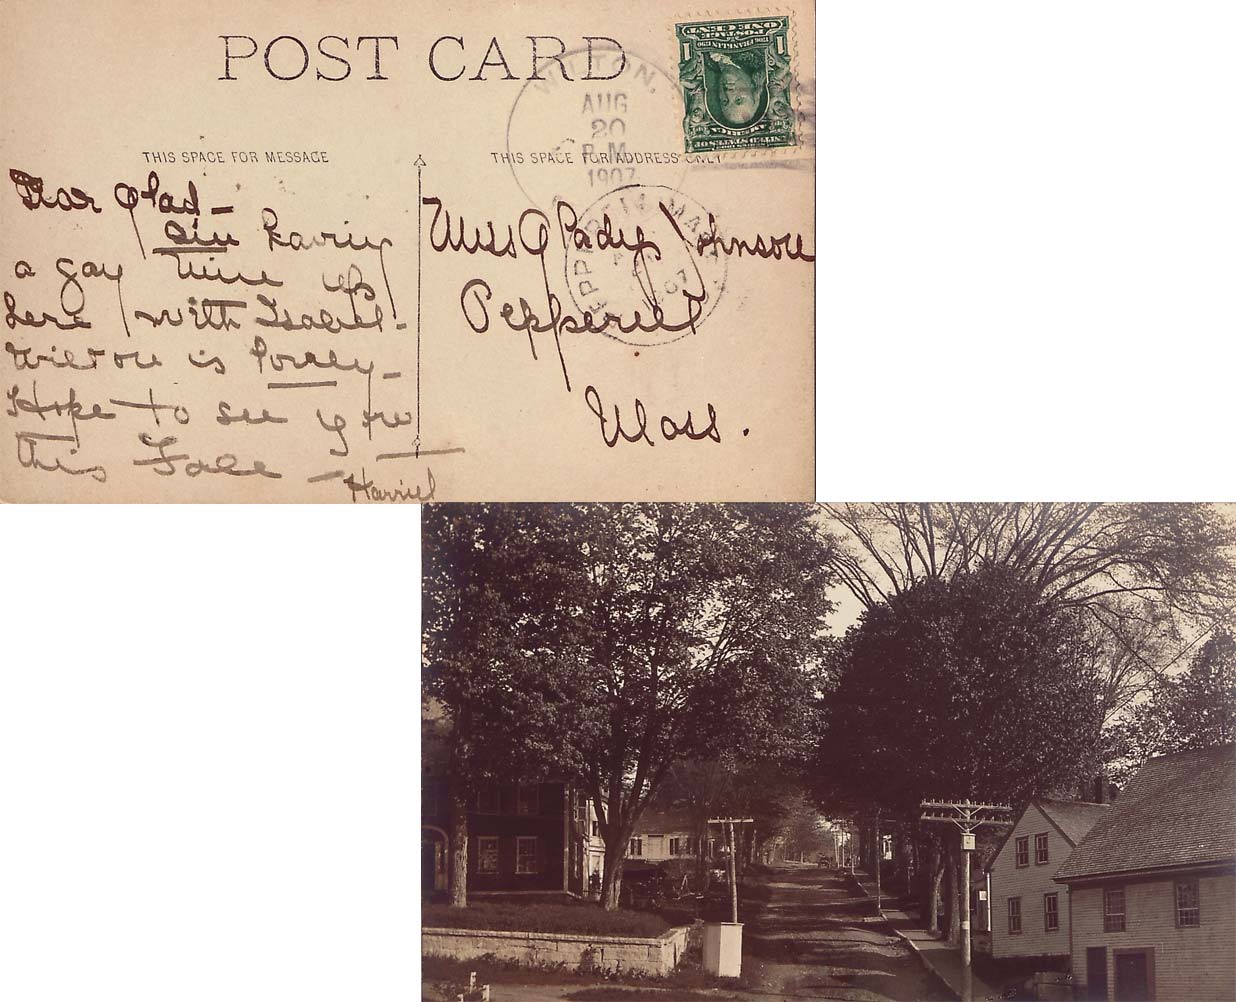 POST CARD
WILTON,
AUG
20
P.M.
1907
POSTAGE
ONE CENT
1 1
THIS SPACE FOR MESSAGE
THIS SPACE FOR ADDRESS ONLY
Dear Glad -
Am having
a gay time up
here with Isabel -
Wilton is lovely -
Hope to see you
this Fall -
Harriet
Miss Gladys Johnson
Pepperell
Mass.
PEPPERELL MASS